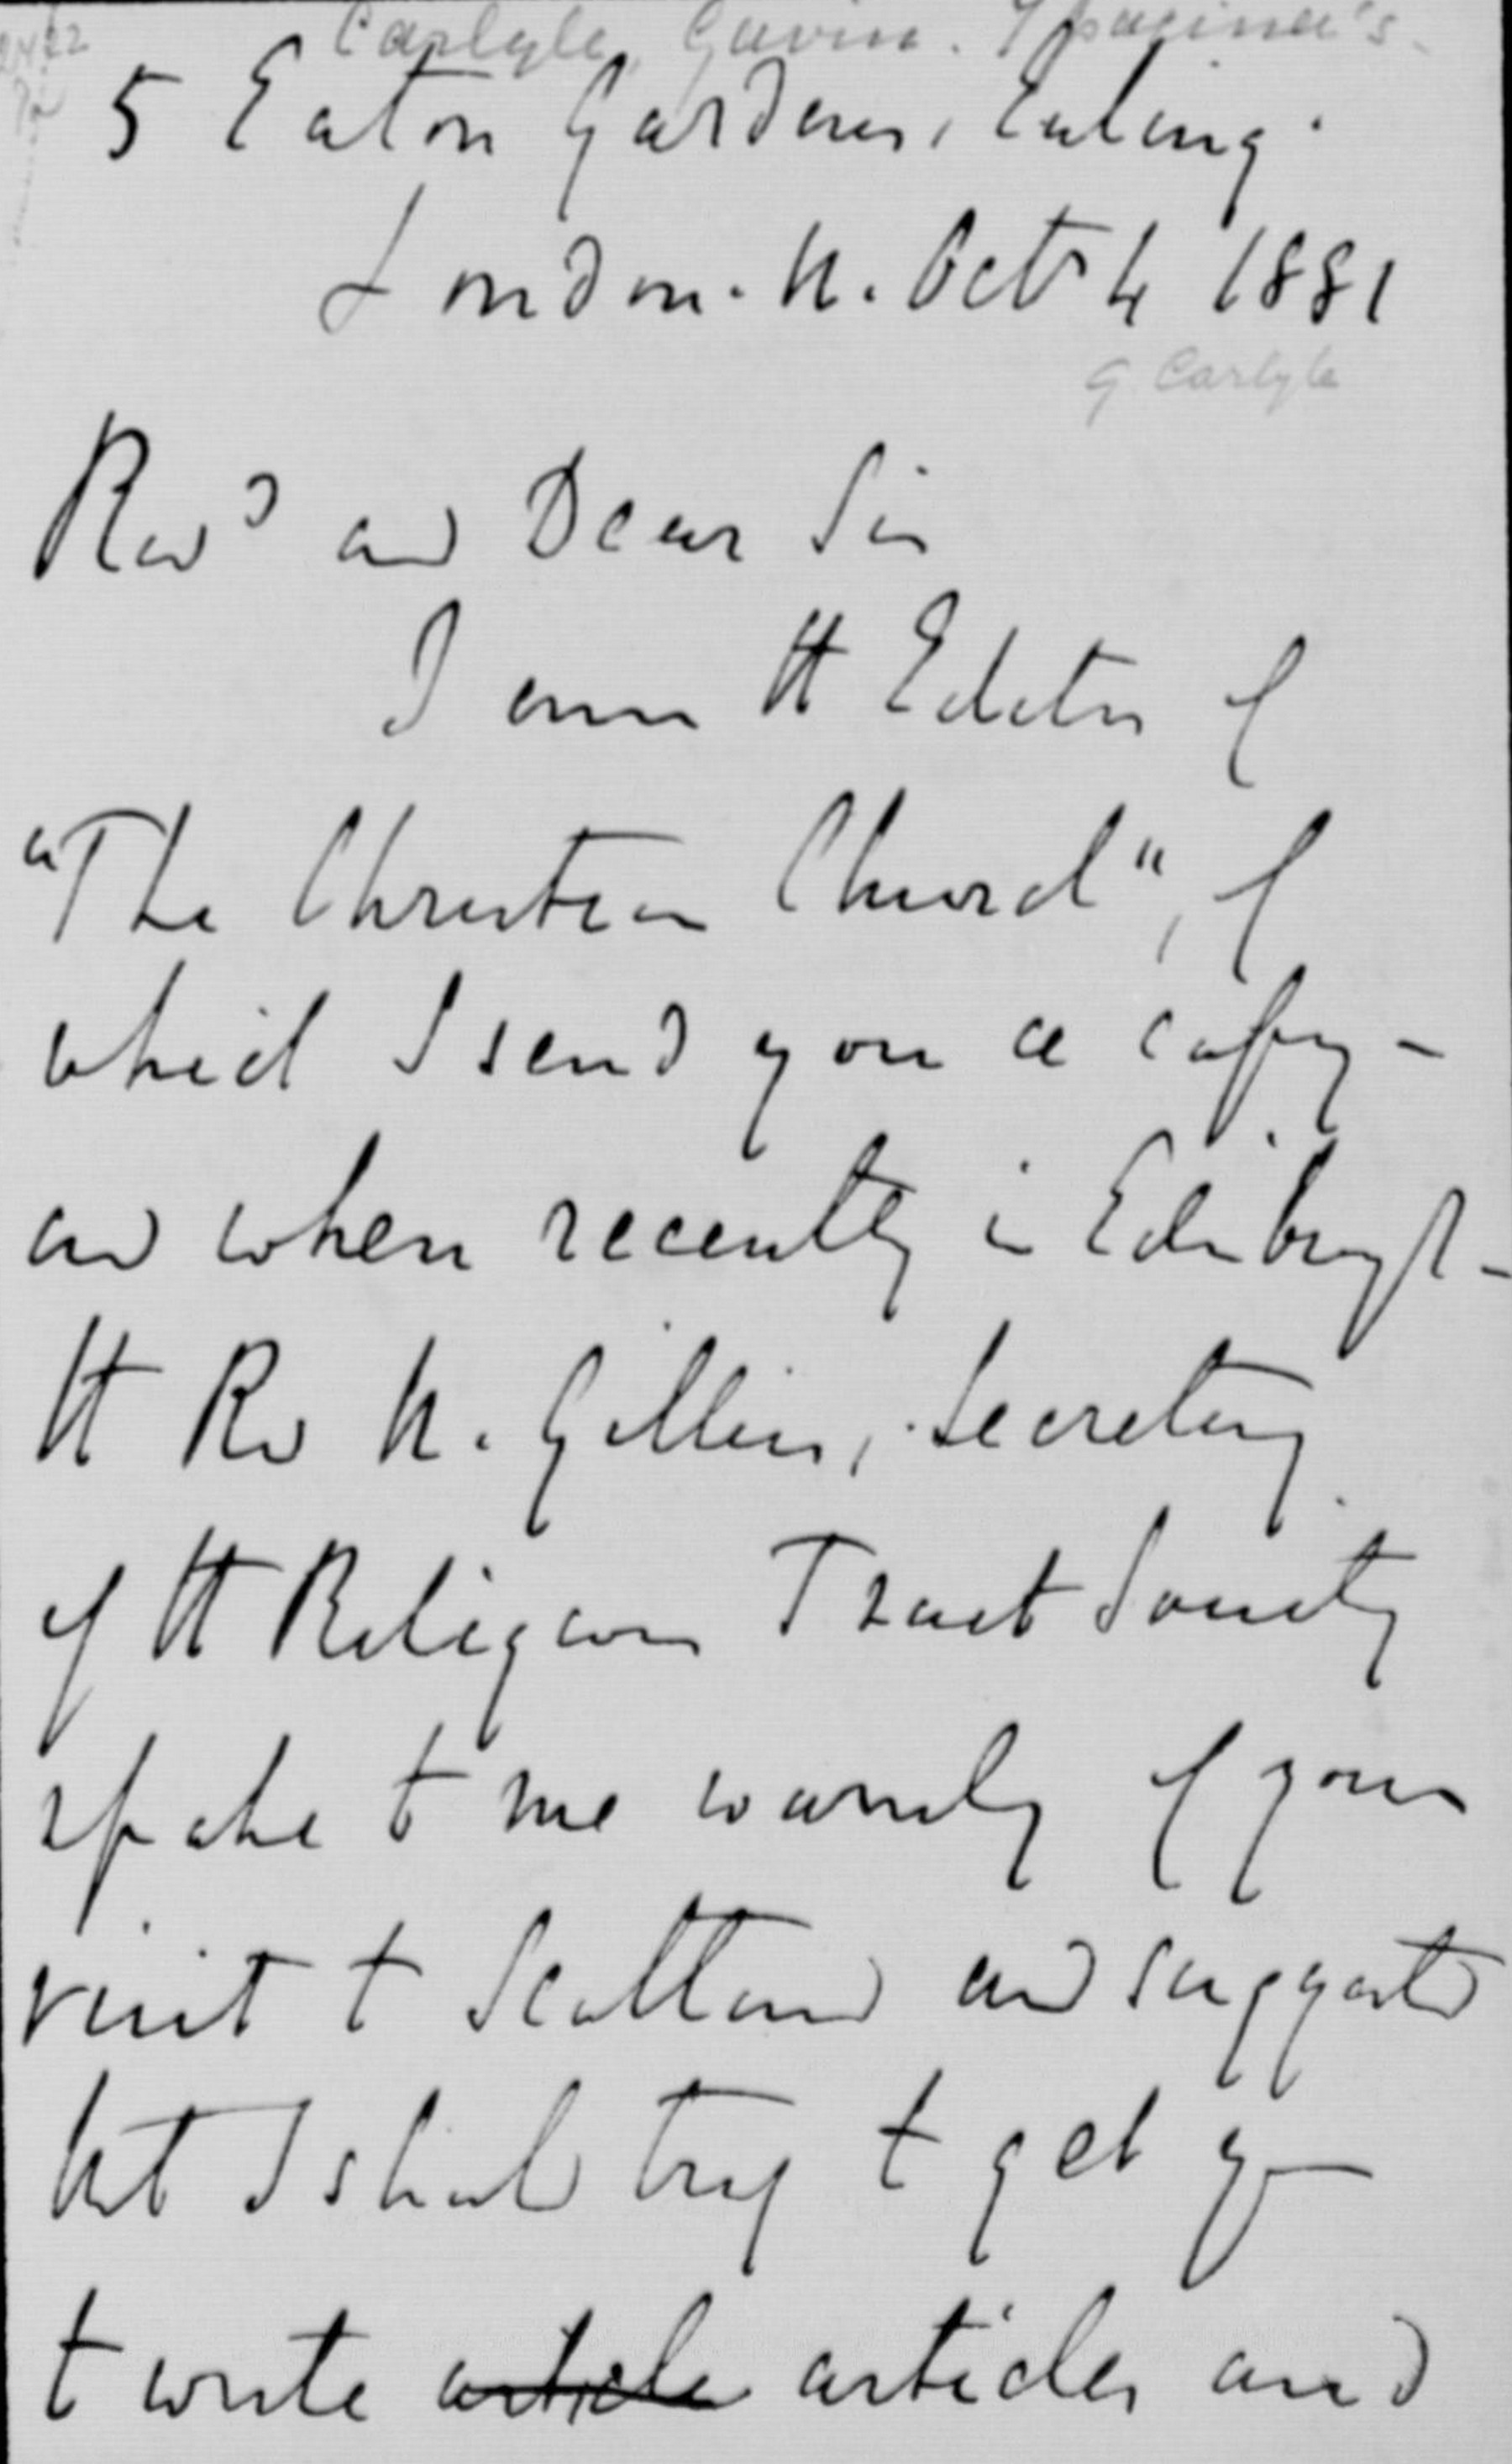 Carlyle, Gavin.
5 Eaton Gardens, Ealing.
London. W. Oct 4 1881
G. Carlyle
Revd and Dear Sir
I am the Editor of
"The Christian Church", of
which I send you a copy -
and when recently in Edinburgh -
the Rev W. Gillies, Secretary
of the Religious Tract Society
spoke to me warmly of your
visit to Scotland and suggested
that I should try to get you
to write article articles and